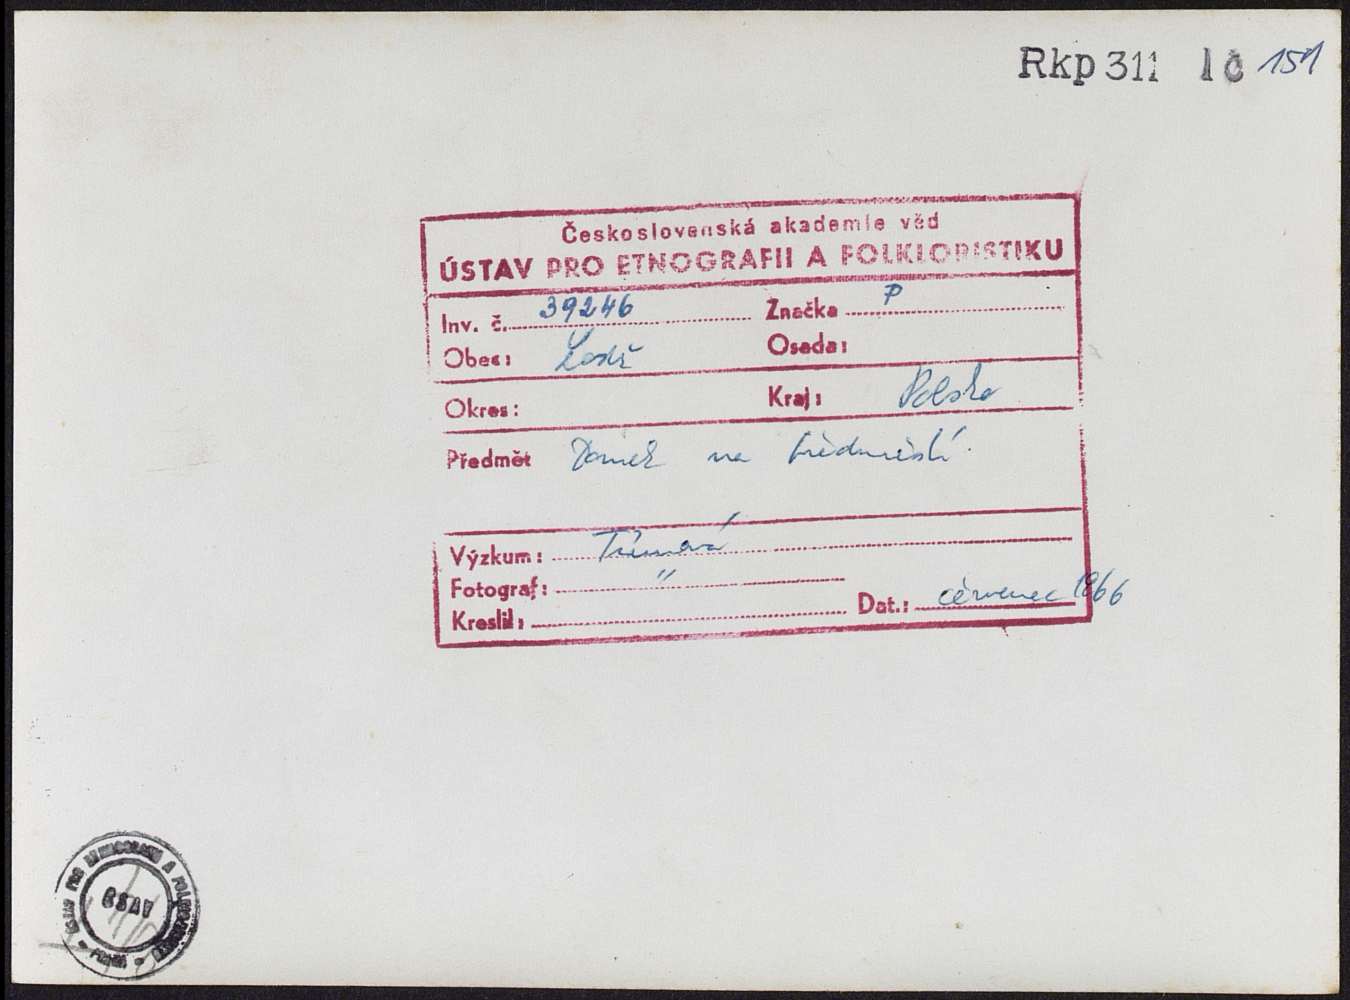 Rkp 311 1č 151
Československá akademie věd
ÚSTAV PRO ETNOGRAFII A FOLKLORISTIKU
Inv. č. 39246 Značka P
Obec: Lodž Osada:
Okres: Kraj: Polsko
Předmět Domek na předměstí.
Výzkum: Tůmová
Fotograf: "
Kreslil: Dat.: červenec 1966
ÚSTAV PRO ETNOGRAFII A FOLKLORISTIKU
ČSAV